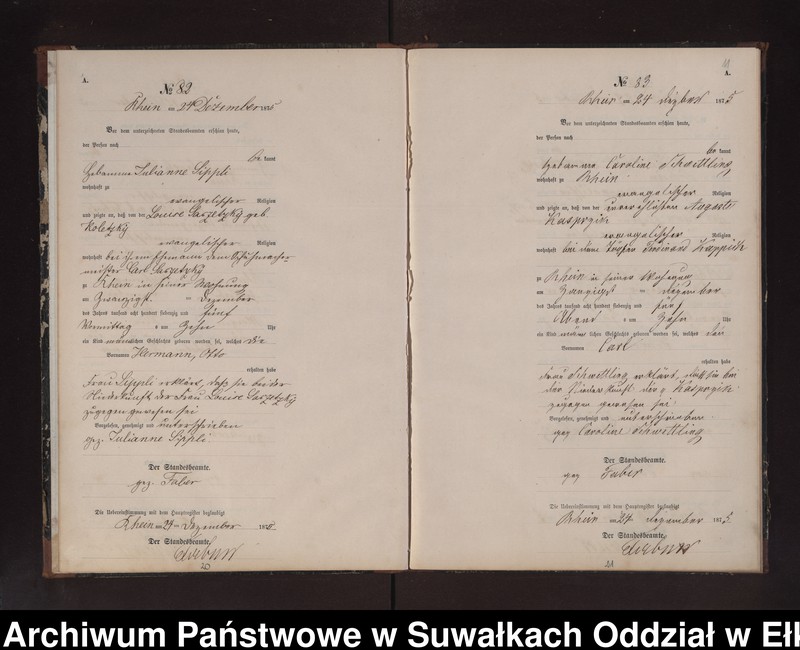 A.
№ 82
Rhein am 24 Dezember 1875
Vor dem unterzeichneten Standesbeamten erschien heute,
der Person nach
be kannt
Hebamme Julianne Sippli
wohnhaft zu
evangelischer Religion
und zeigte an, daß von der Louise geb.
Koletzky
evangelischer Religion
wohnhaft bei ihrem Ehemanne dem Schuhmacher
meister Carl
zu Rhein in seiner Wohnung
am Zwanzigst. ten Dezember
des Jahres tausend acht hundert siebenzig und fünf
Vormittag s um Zehn Uhr
ein Kind männlichen Geschlechts geboren worden sei, welches die
Vornamen Hermann, Otto
erhalten habe
Frau Sippli erklärt, daß sie bei der
Niederkunft der Frau Louise
zugegen gewesen sei
Vorgelesen, genehmigt und unterschrieben
gez. Julianne Sippli
Der Standesbeamte.
gez. Faber
Die Uebereinstimmung mit dem Hauptregister beglaubigt
Rhein am 24ten Dezember 1875
Der Standesbeamte.
20
11
A.
№ 83
Rhein am 24 Dezember 1875
Vor dem unterzeichneten Standesbeamten erschien heute,
der Person nach
be kannt
Hebamme Caroline Schwittling
wohnhaft zu Rhein
evangelischer Religion
und zeigte an, daß von der unverehelichten Auguste
evangelischer Religion
wohnhaft bei dem Töpfer Ferdinand
zu Rhein in seiner Wohnung
am Zwanzigst ten Dezember
des Jahres tausend acht hundert siebenzig und fünf
Abend s um Zehn Uhr
ein Kind männ lichen Geschlechts geboren worden sei, welches den
Vornamen Carl
erhalten habe
Frau Schwittling erklärt, daß sie bei
der Niederkunft der p
zugegen gewesen sei
Vorgelesen, genehmigt und unterschrieben
gez Caroline Schwittling
Der Standesbeamte.
gez Faber
Die Uebereinstimmung mit dem Hauptregister beglaubigt
Rhein am 24 Dezember 1875
Der Standesbeamte.
21
Archiwum Państwowe w Suwałkach Oddział w Ełk